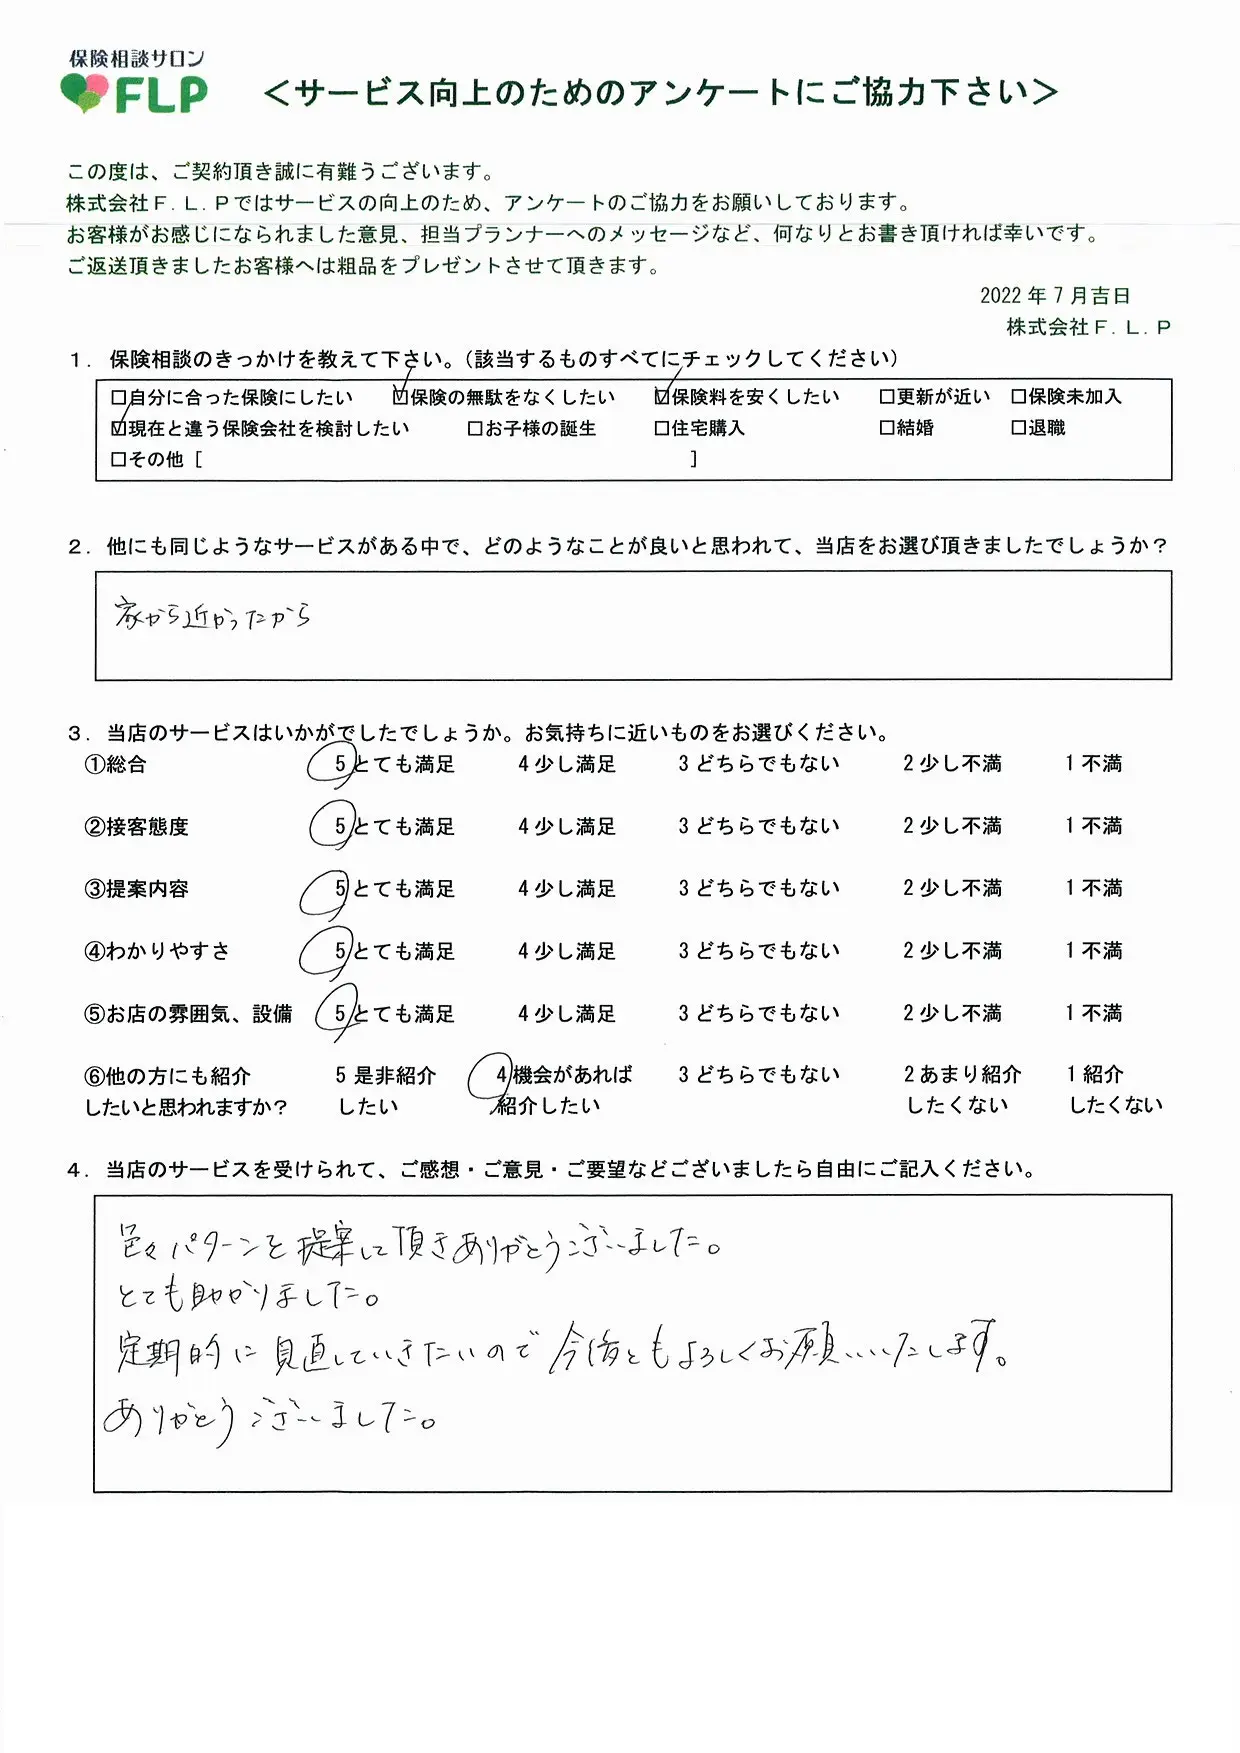 保険相談サロン
FLP
＜サービス向上のためのアンケートにご協力下さい＞
この度は、ご契約頂き誠に有難うございます。
株式会社Ｆ．Ｌ．Ｐではサービスの向上のため、アンケートのご協力をお願いしております。
お客様がお感じになられました意見、担当プランナーへのメッセージなど、何なりとお書き頂ければ幸いです。
ご返送頂きましたお客様へは粗品をプレゼントさせて頂きます。
2022 年 7 月吉日
株式会社Ｆ．Ｌ．Ｐ
１．保険相談のきっかけを教えて下さい。（該当するものすべてにチェックしてください）
□自分に合った保険にしたい ☑保険の無駄をなくしたい ☑保険料を安くしたい □更新が近い □保険未加入
☑現在と違う保険会社を検討したい □お子様の誕生 □住宅購入 □結婚 □退職
□その他［ ］
２．他にも同じようなサービスがある中で、どのようなことが良いと思われて、当店をお選び頂きましたでしょうか？
家から近かったから
３．当店のサービスはいかがでしたでしょうか。お気持ちに近いものをお選びください。
①総合 5 とても満足 4 少し満足 3 どちらでもない 2 少し不満 1 不満
②接客態度 5 とても満足 4 少し満足 3 どちらでもない 2 少し不満 1 不満
③提案内容 5 とても満足 4 少し満足 3 どちらでもない 2 少し不満 1 不満
④わかりやすさ 5 とても満足 4 少し満足 3 どちらでもない 2 少し不満 1 不満
⑤お店の雰囲気、設備 5 とても満足 4 少し満足 3 どちらでもない 2 少し不満 1 不満
⑥他の方にも紹介 5 是非紹介 4 機会があれば 3 どちらでもない 2 あまり紹介 1 紹介
したいと思われますか？ したい 紹介したい したくない したくない
４．当店のサービスを受けられて、ご感想・ご意見・ご要望などございましたら自由にご記入ください。
色々パターンを提案して頂きありがとうございました。
とても助かりました。
定期的に見直していきたいので今後ともよろしくお願いいたします。
ありがとうございました。